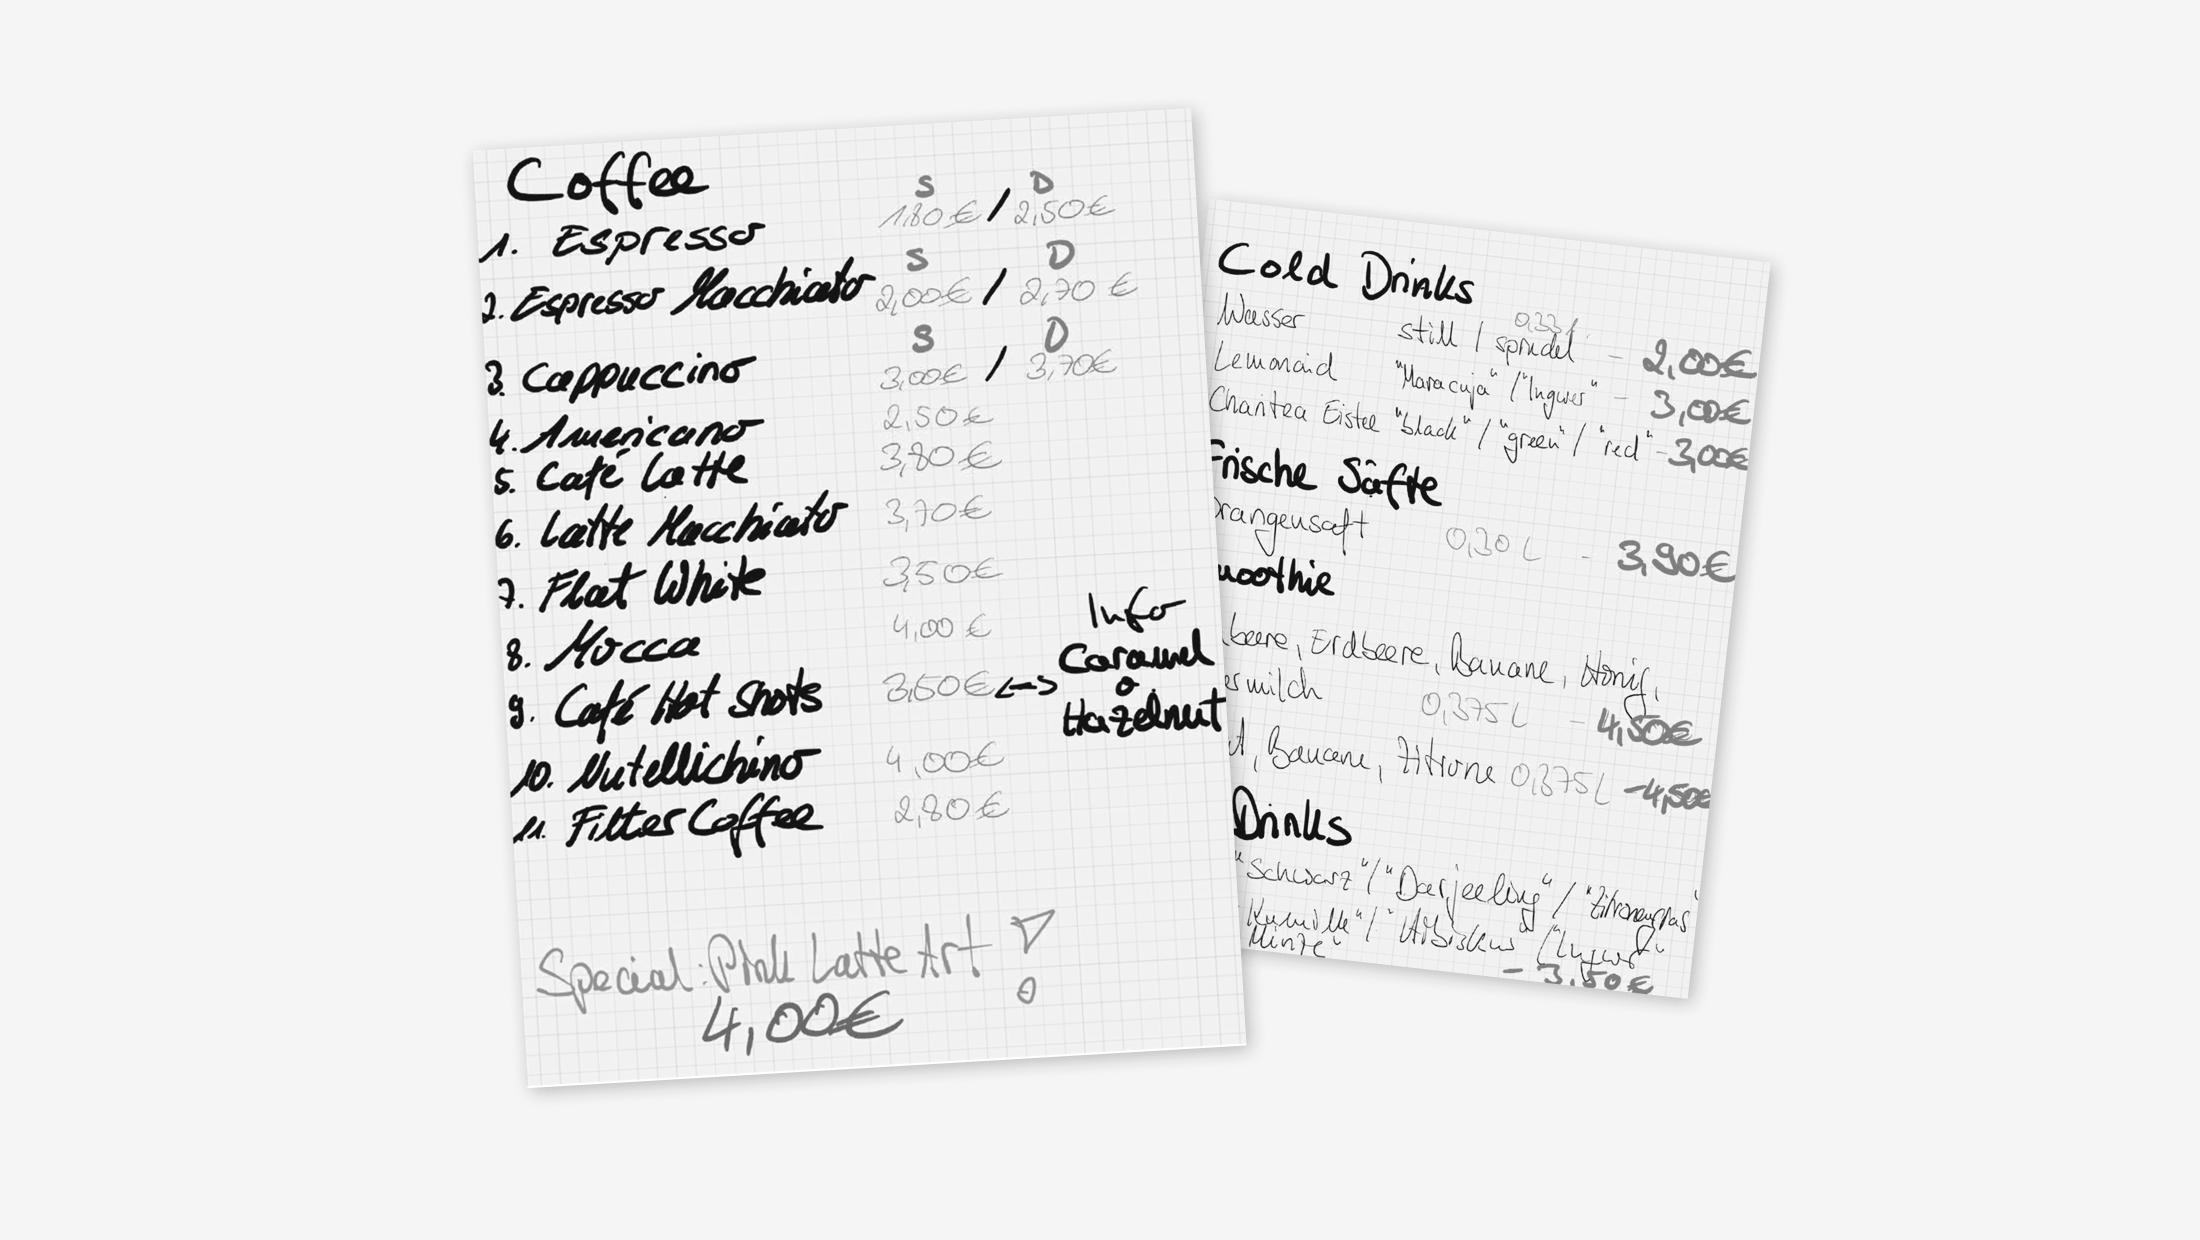 Coffee
S D
1. Espresso 1,80€ / 2,50€
S D
2. Espresso Macchiato 2,00€ / 2,70€
S D
3. Cappuccino 3,00€ / 3,70€
4. Americano 2,50€
5. Café Latte 3,80€
6. Latte Macchiato 3,70€
7. Flat White 3,50€
8. Mocca 4,00€
9. Café Hot Shots 3,50€ <-->
Info
Caramel
o
Hazelnut
10. Nutellichino 4,00€
11. Filter Coffee 2,80€
Special: Pink Latte Art
4,00€
Cold Drinks
0,33 l
Wasser still / sprudel – 2,00€
Lemonaid "Maracuja" / "Ingwer" – 3,00€
Charitea Eistee "black" / "green" / "red" – 3,00€
Frische Säfte
Orangensaft 0,30 L – 3,90€
moothie
beere, Erdbeere, Banane, Honig,
ermilch 0,375 L – 4,50€
t, Banane, Zitrone 0,375 L – 4,50€
Drinks
"Schwarz" / "Darjeeling" / "Zitronengras"
"Kamille" / "Hibiskus" / "Ingwer"
Minze"
– 3,50€